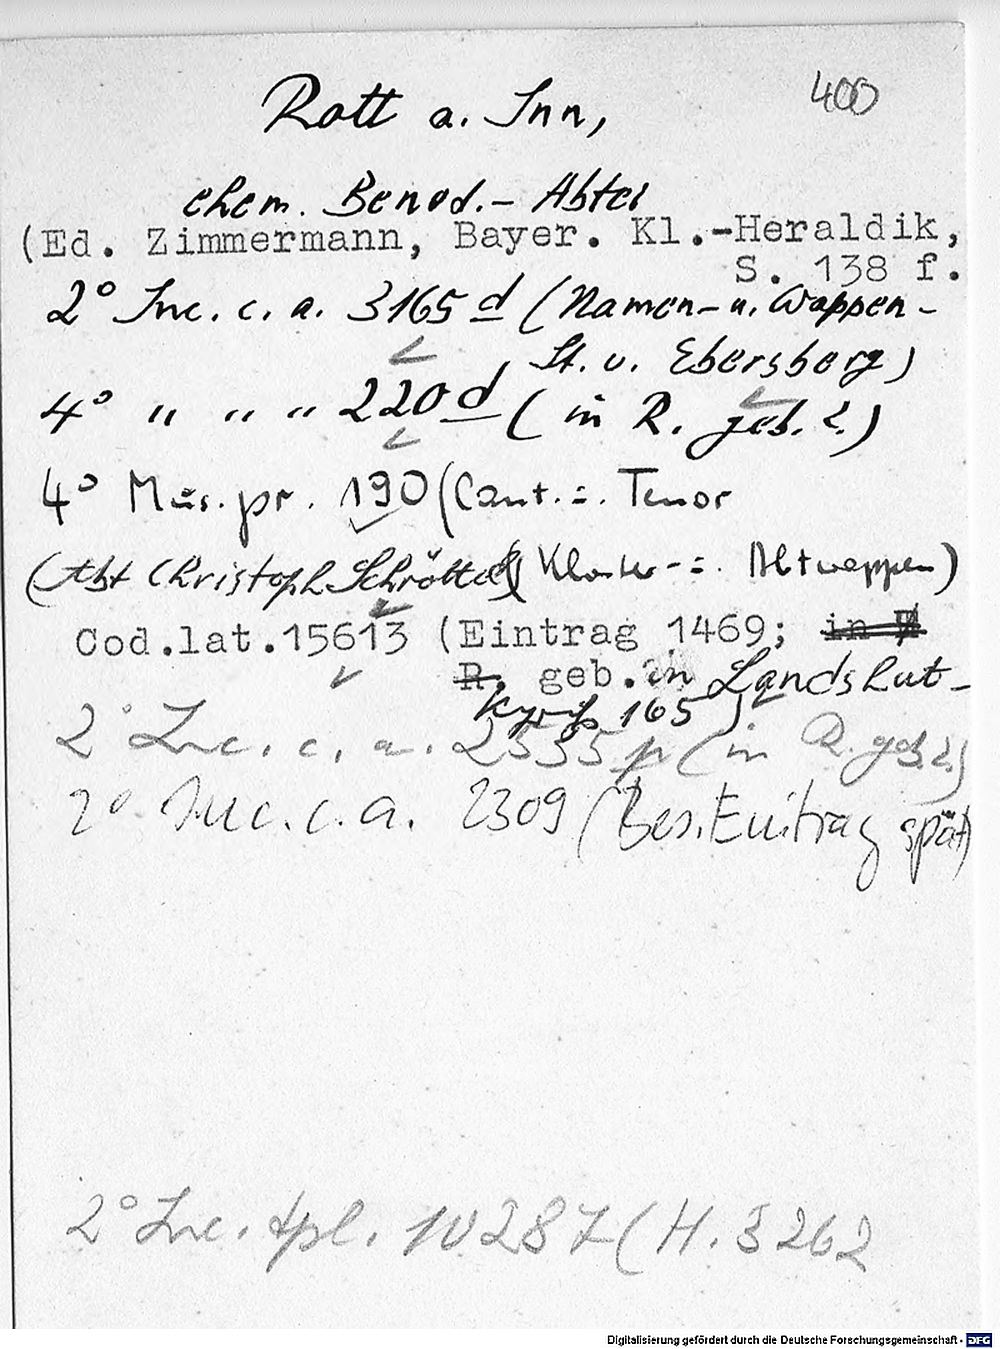 400
Rott a. Inn,
ehem. Bened.- Abtei
(Ed. Zimmermann, Bayer. Kl.-Heraldik,
S. 138 f.
2° Inc. c. a. 3165 d (Namen- u. Wappen-
St. v. Ebersberg)
4° " " " 220 d (in R. geb.?)
4° Mus. pr. 190 (Cant. u. Tenor
(Abt Christoph Schrötter Kloster- u. Abtwappen)
Cod.lat.15613 (Eintrag 1469; in
R. geb. in Landshut-
Kyriß 165)
2° Inc. c. a. 2535 p (in R. geb.?)
2° Inc. c. a. 2309 (Bes. Eintrag spät)
2° Inc. dpl. 10287 (H. 3262
Digitalisierung gefördert durch die Deutsche Forschungsgemeinschaft - DFG